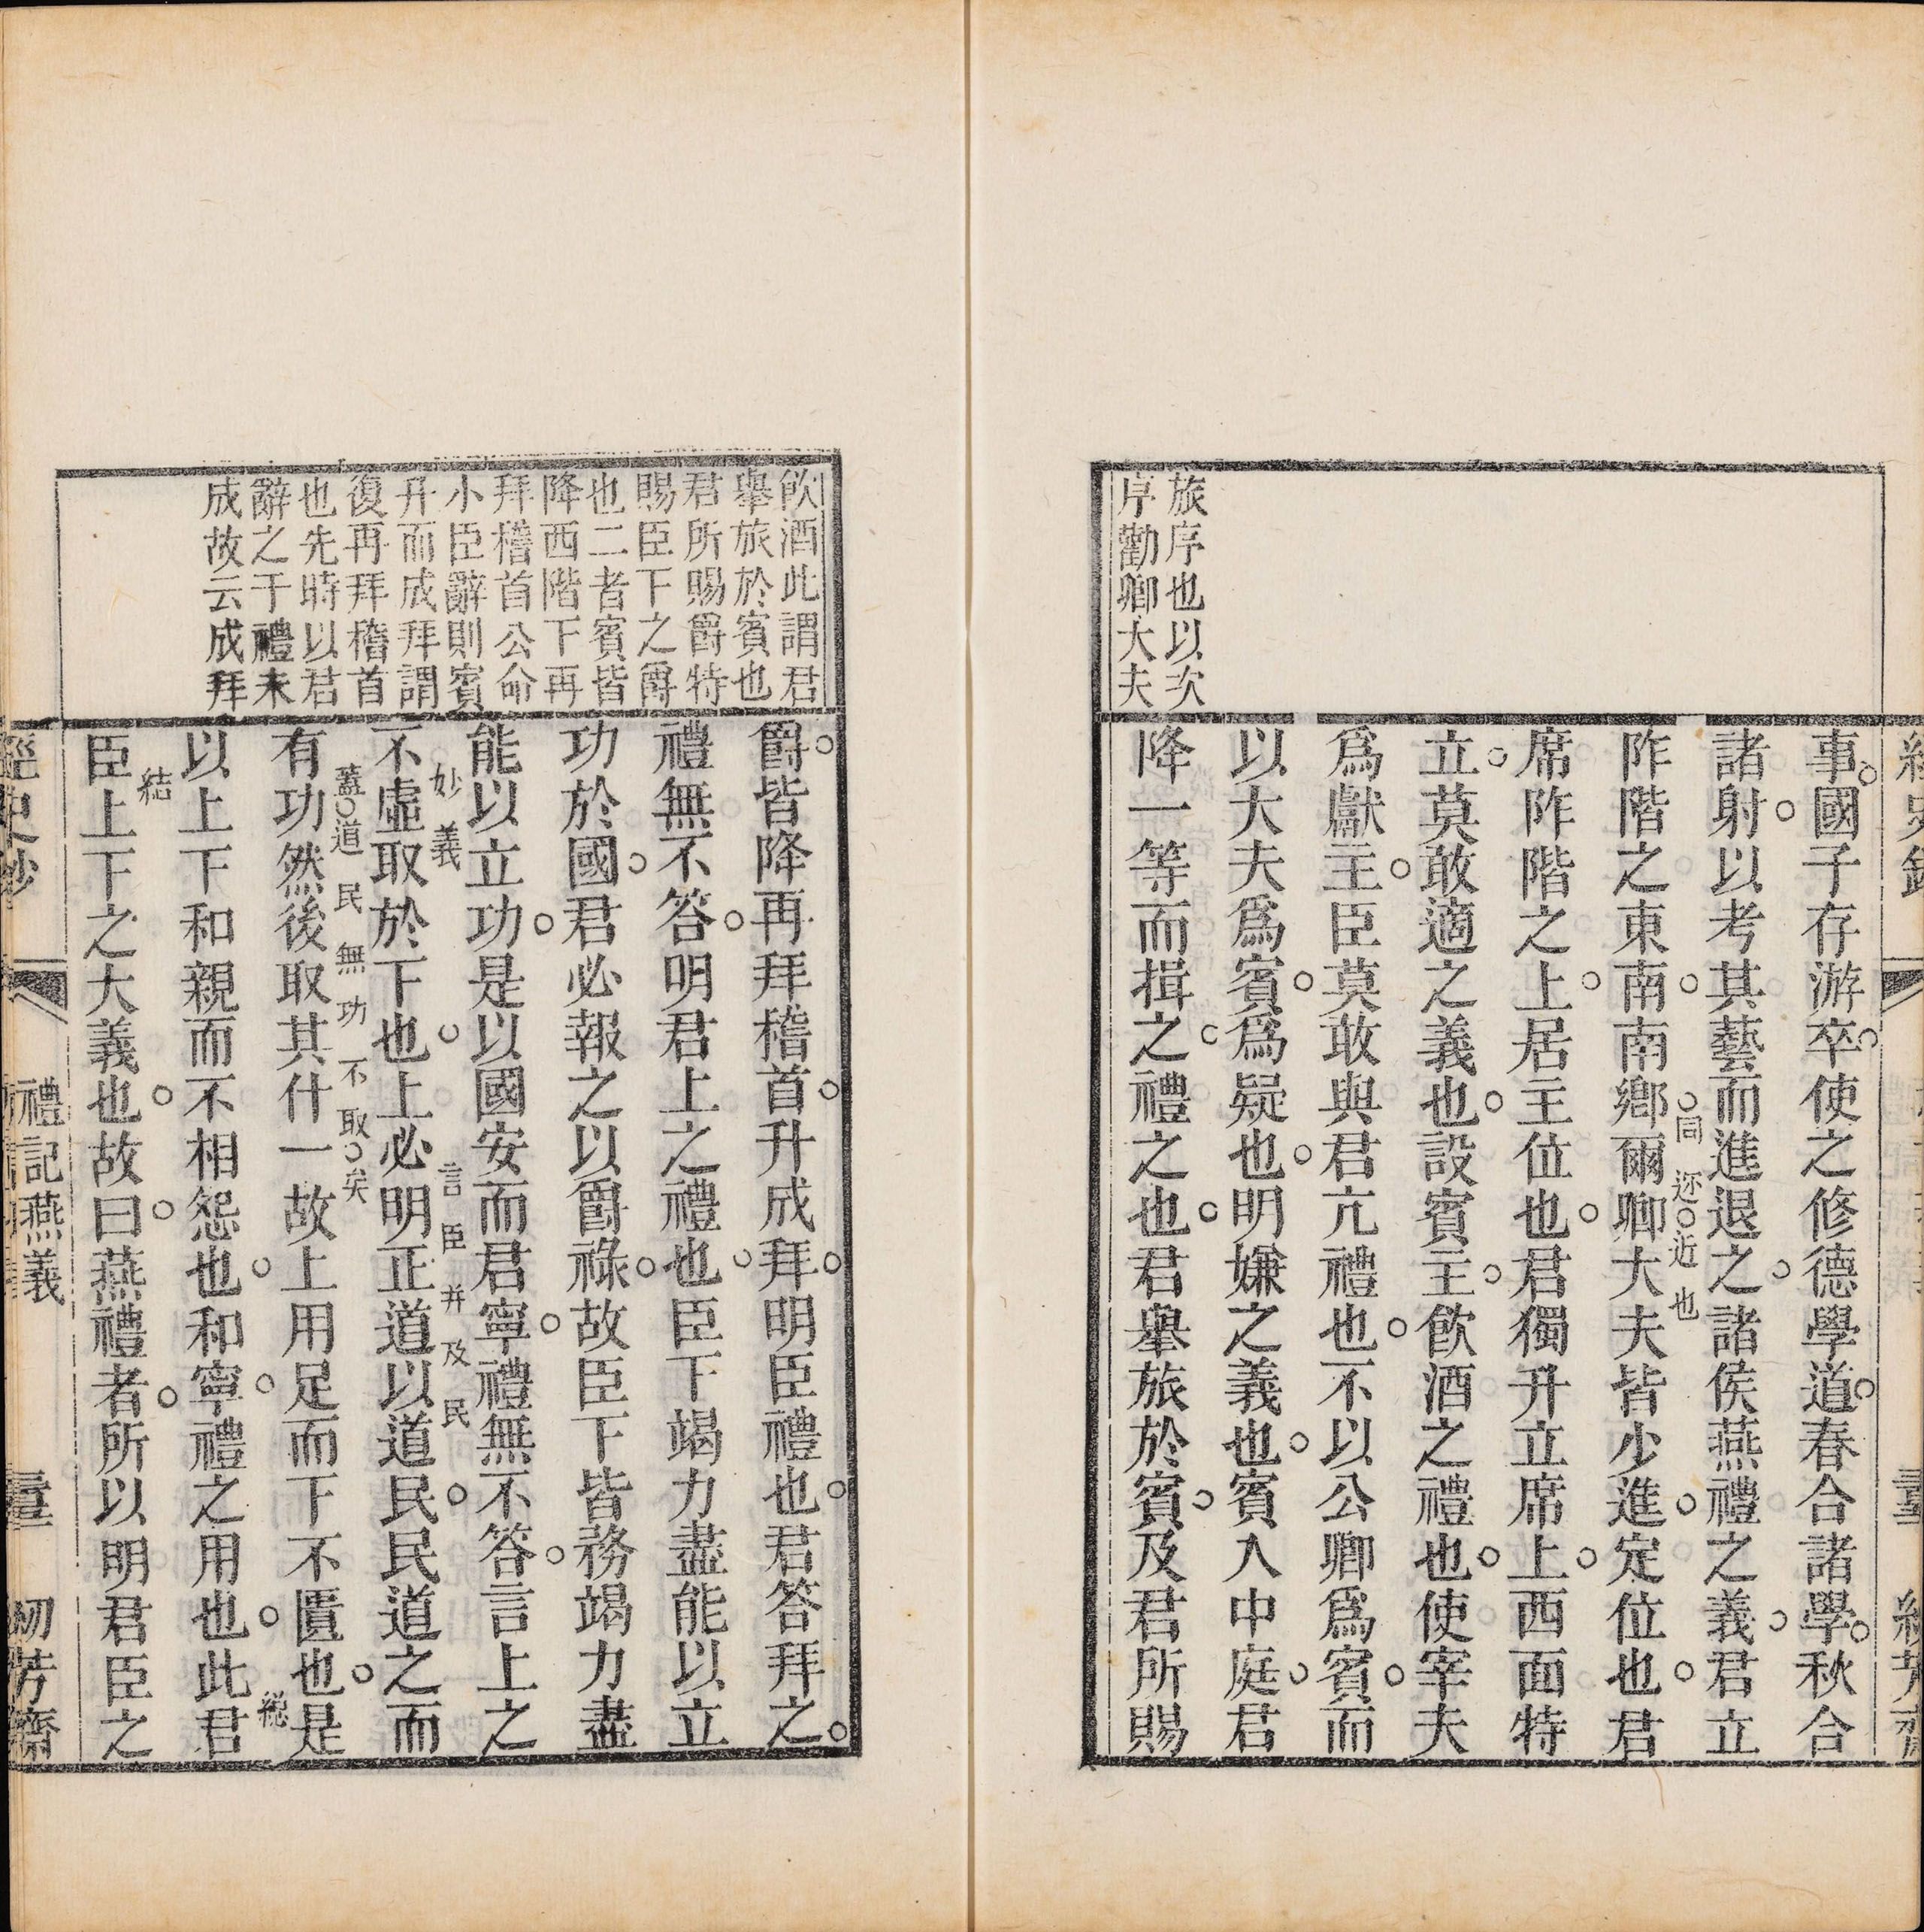 旅序也以次
序勸卿大夫
事國子存游卒使之修德學道春合諸學秋合
諸射以考其藝而進退之諸侯燕禮之義君立
阼階之東南南鄉爾卿大夫皆少進定位也君
同邇近也
席阼階之上居主位也君獨升立席上西面特
立莫敢適之義也設賓主飲酒之禮也使宰夫
爲獻主臣莫敢與君亢禮也不以公卿爲賓而
以大夫爲賓爲疑也明嫌之義也賓入中庭君
降一等而揖之禮之也君舉旅於賓及君所賜
飲酒此謂君
舉旅於賓也
君所賜爵特
賜臣下之爵
也二者賓皆
降西階下再
拜稽首公命
小臣辭則賓
升而成拜謂
復再拜稽首
也先時以君
辭之于禮未
成故云成拜
爵皆降再拜稽首升成拜明臣禮也君答拜之
禮無不答明君上之禮也臣下竭力盡能以立
功於國君必報之以爵祿故臣下皆務竭力盡
能以立功是以國安而君寧禮無不答言上之
妙義
言臣并及民
不虛取於下也上必明正道以道民民道之而
蓋道民無功不取矣
有功然後取其什一故上用足而下不匱也是
總
以上下和親而不相怨也和寧禮之用也此君
結
臣上下之大義也故曰燕禮者所以明君臣之
經史鈔
禮記燕義